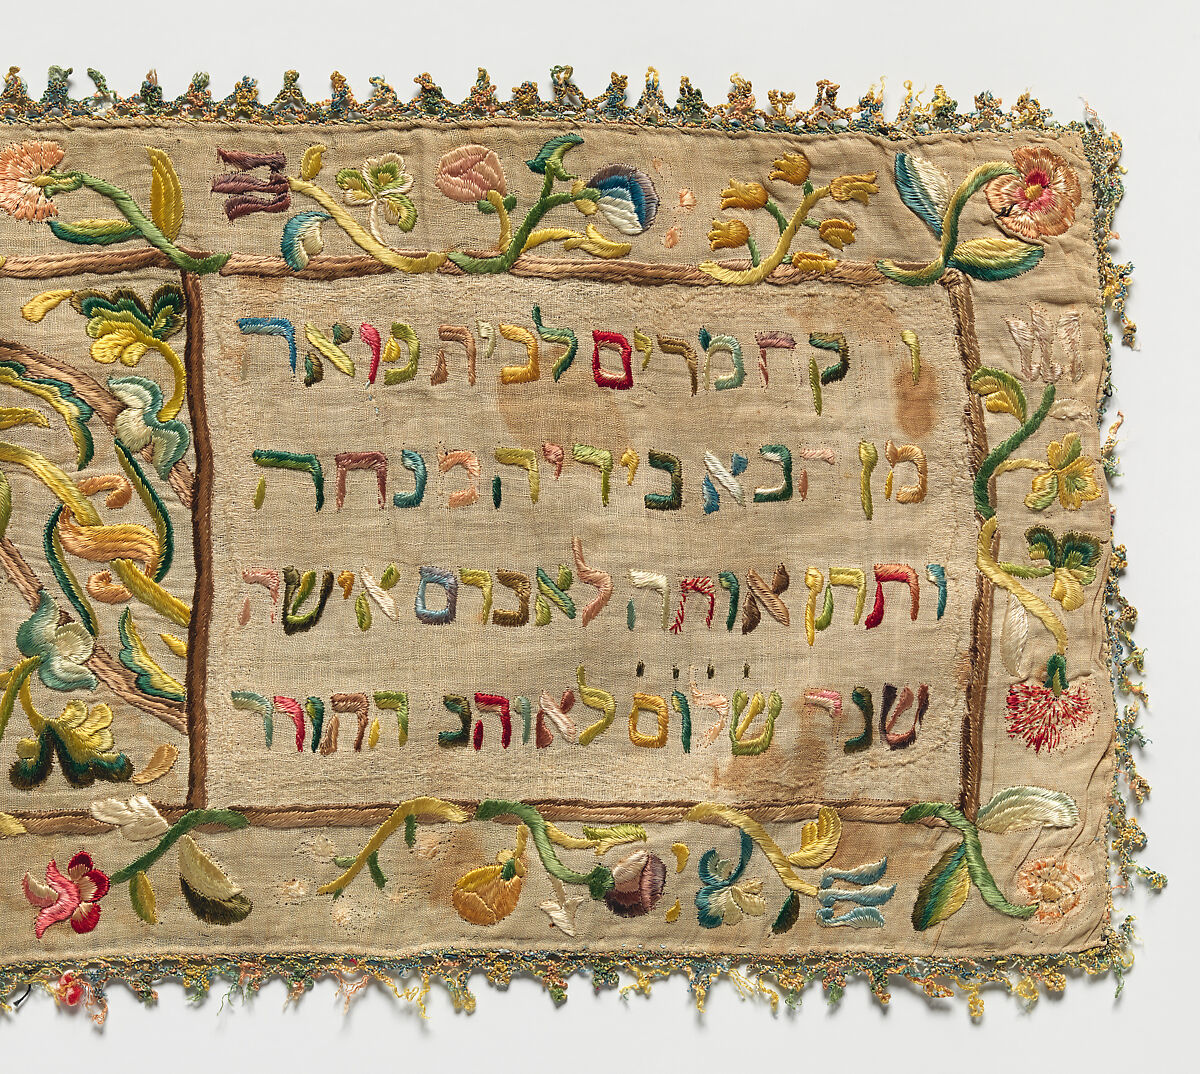 וקח מרים לבית פואה
מן הבא בידיה מנחה
ותתן אותה לאברם אישה
שנת שלום לאוהב התורה